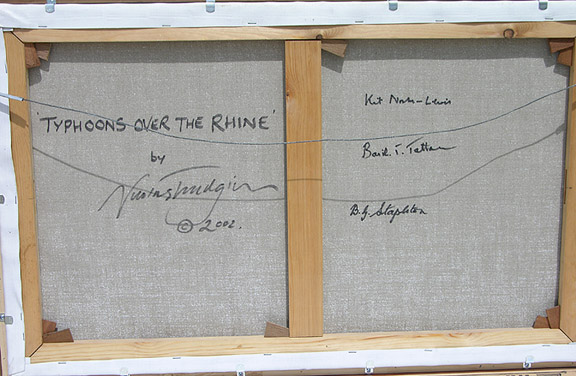 'TYPHOONS OVER THE RHINE'
by
Nicolas Trudgian
© 2002.
Kit North-Lewis
Basil T. Tatham
B.G. Stapleton